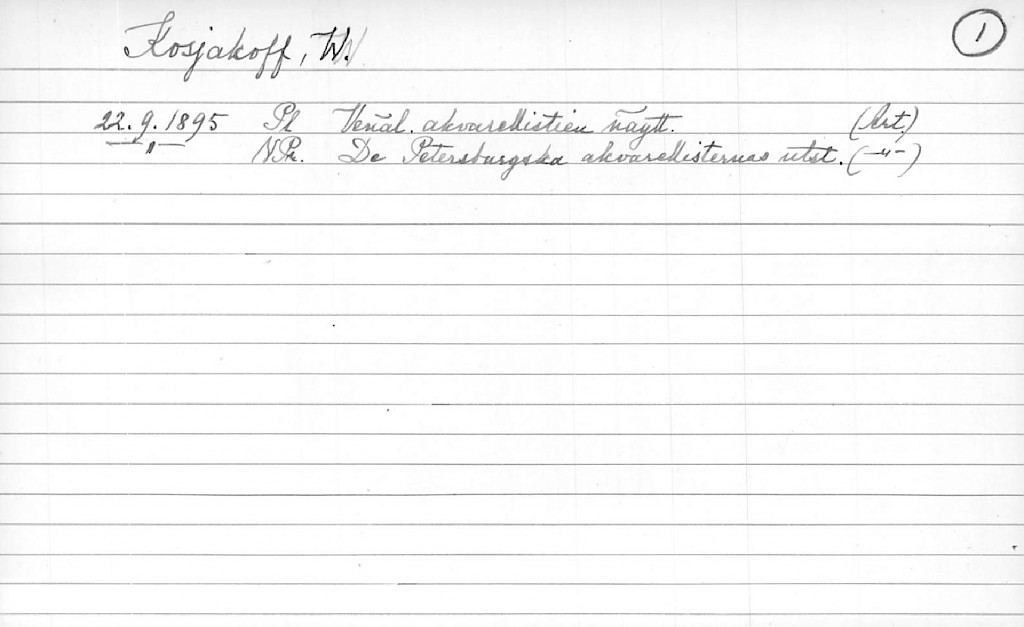 Kosjakoff, W. 1
22.9.1895 Pl Venäl. akvarellistien näytt. (Art.)
—"— NPr. De Petersburgska akvarellisternas utst. (—"—)